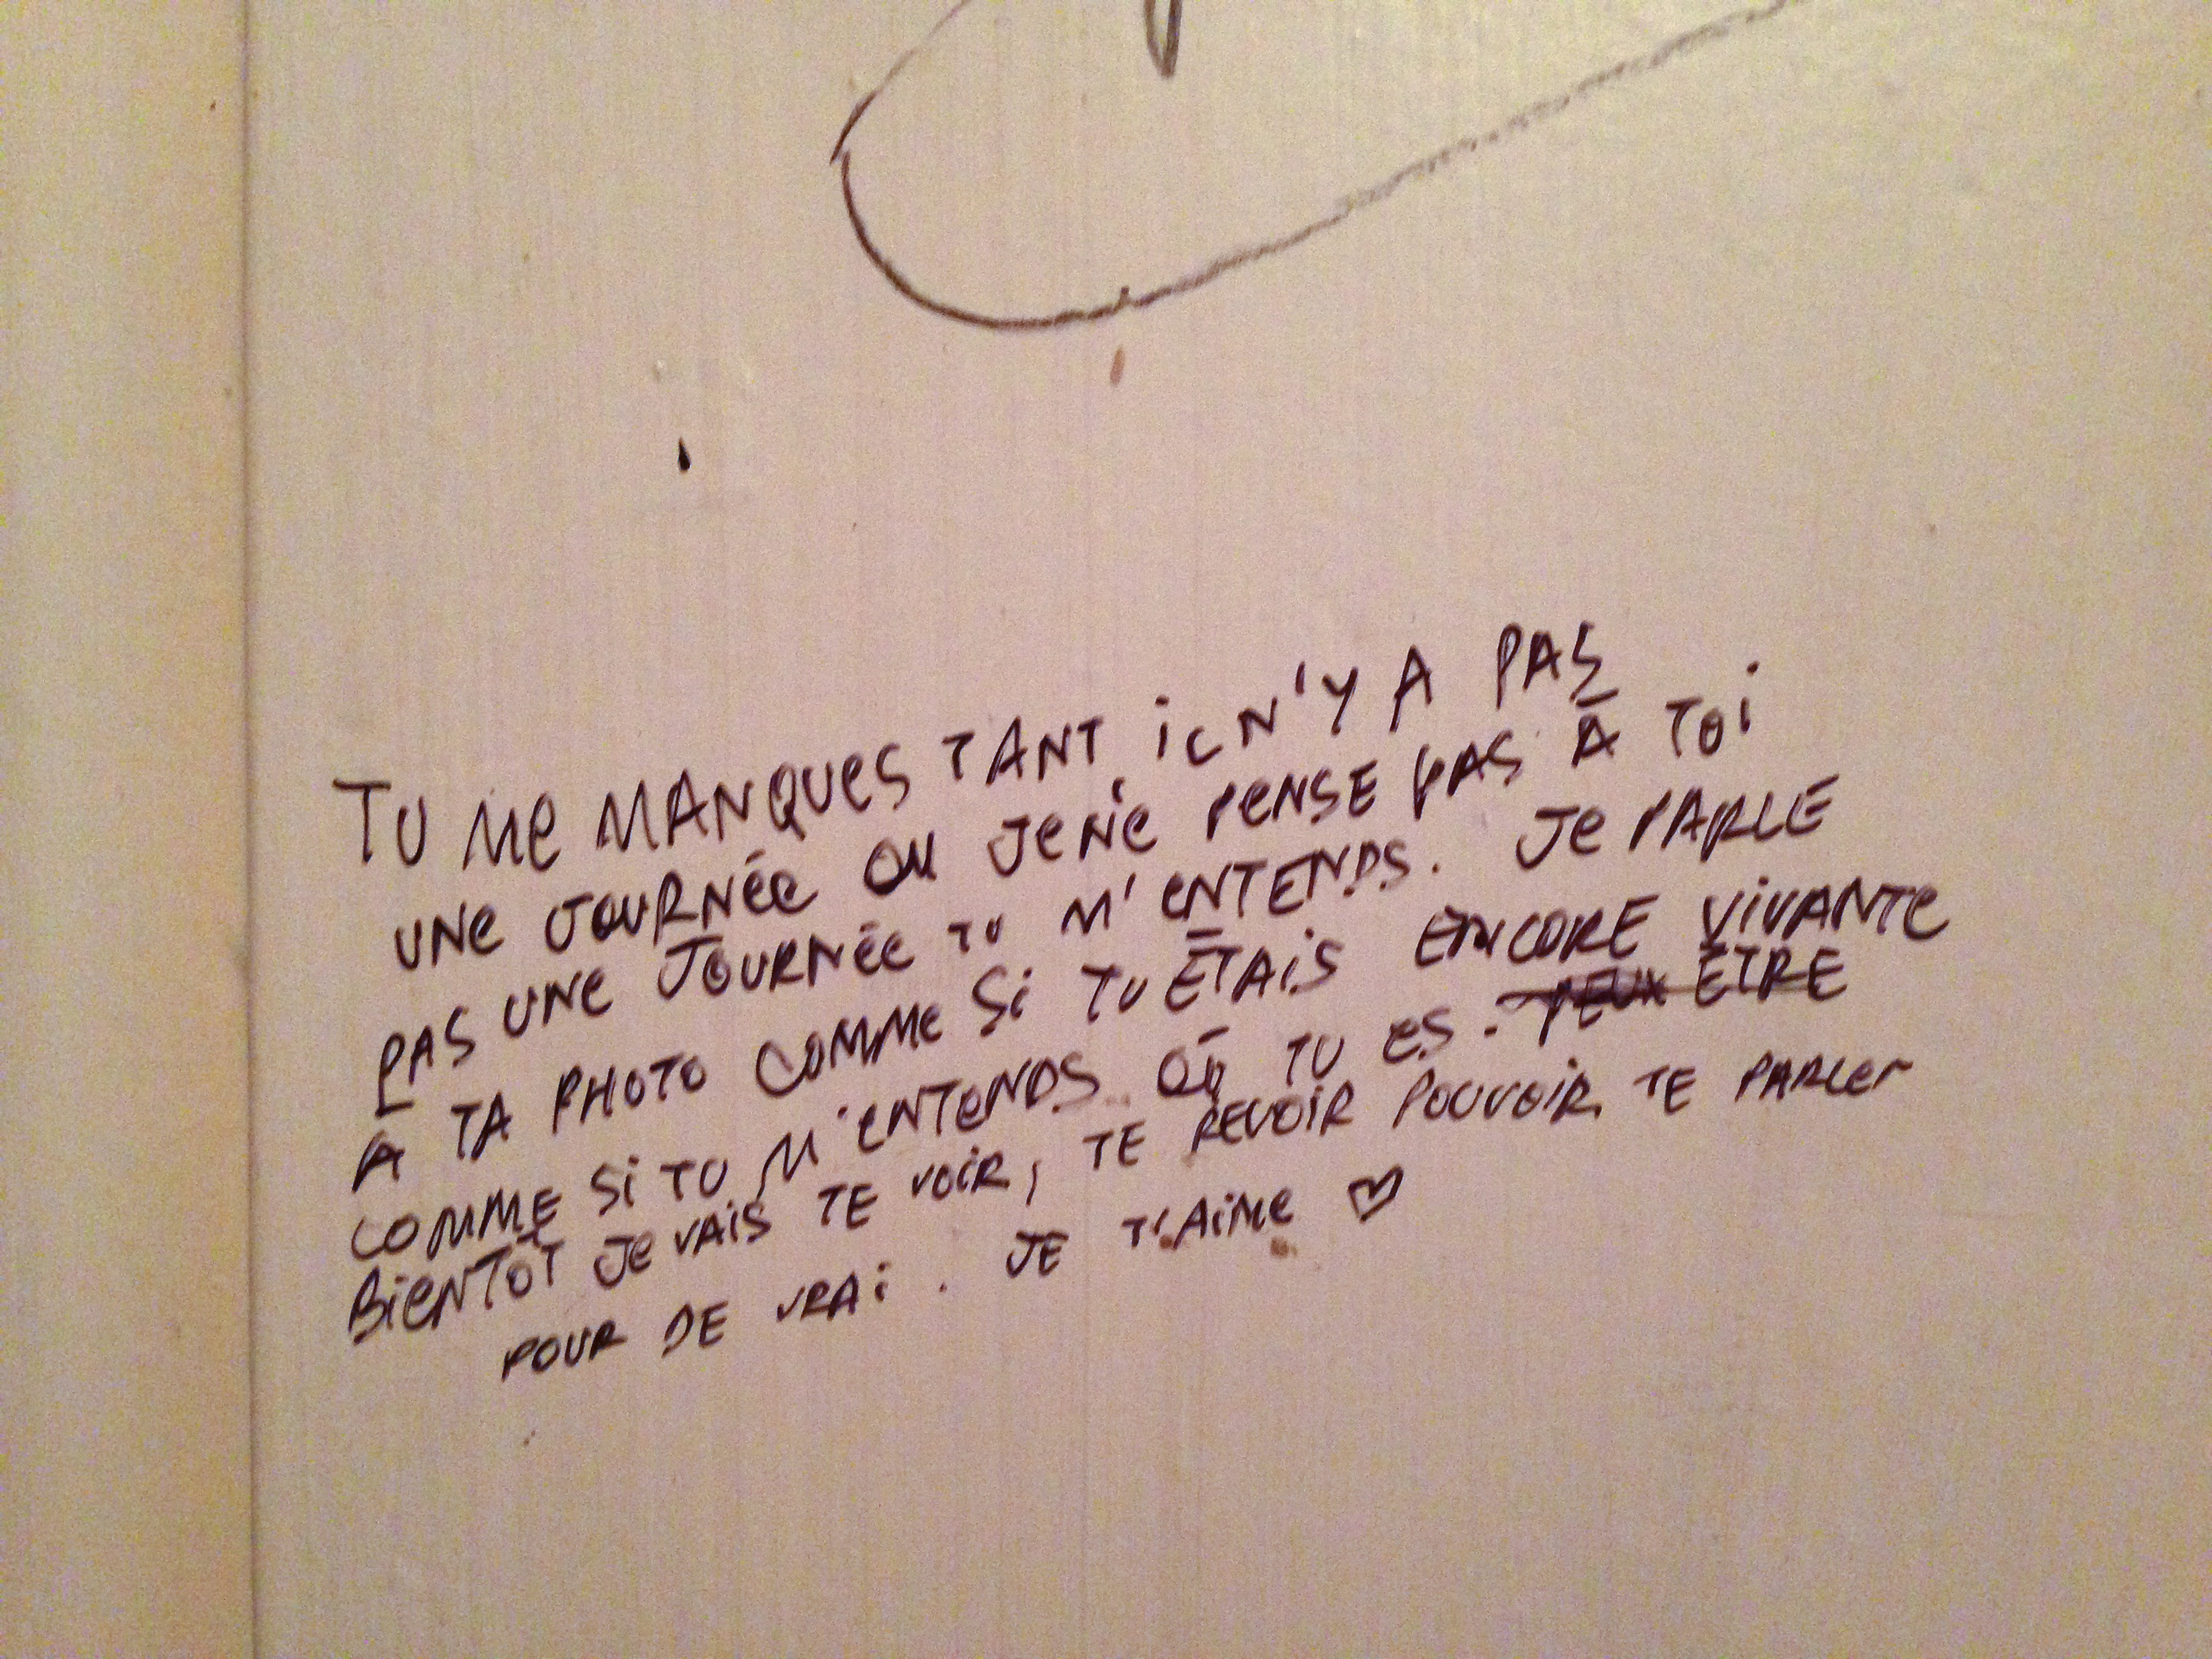 TU Me MANQUeS TANT. iL N'Y A PAS
UNe JOURNÉe OU Je Ne PeNSE PAS À TOi
PAS UNe JOURNÉe TU M'eNTENDS. Je PARLE
À TA PHOTO COMMe Si TU ÉTAiS ENCORE ViVANTe
COMME Si TU M'eNTeNDS OÙ TU eS. PEUX ÊTRE
BieNTÔT Je VAiS TE VOiR, TE REVOiR POUVOiR TE PARLer
POUR DE VRAi. JE T'AiMe ♡